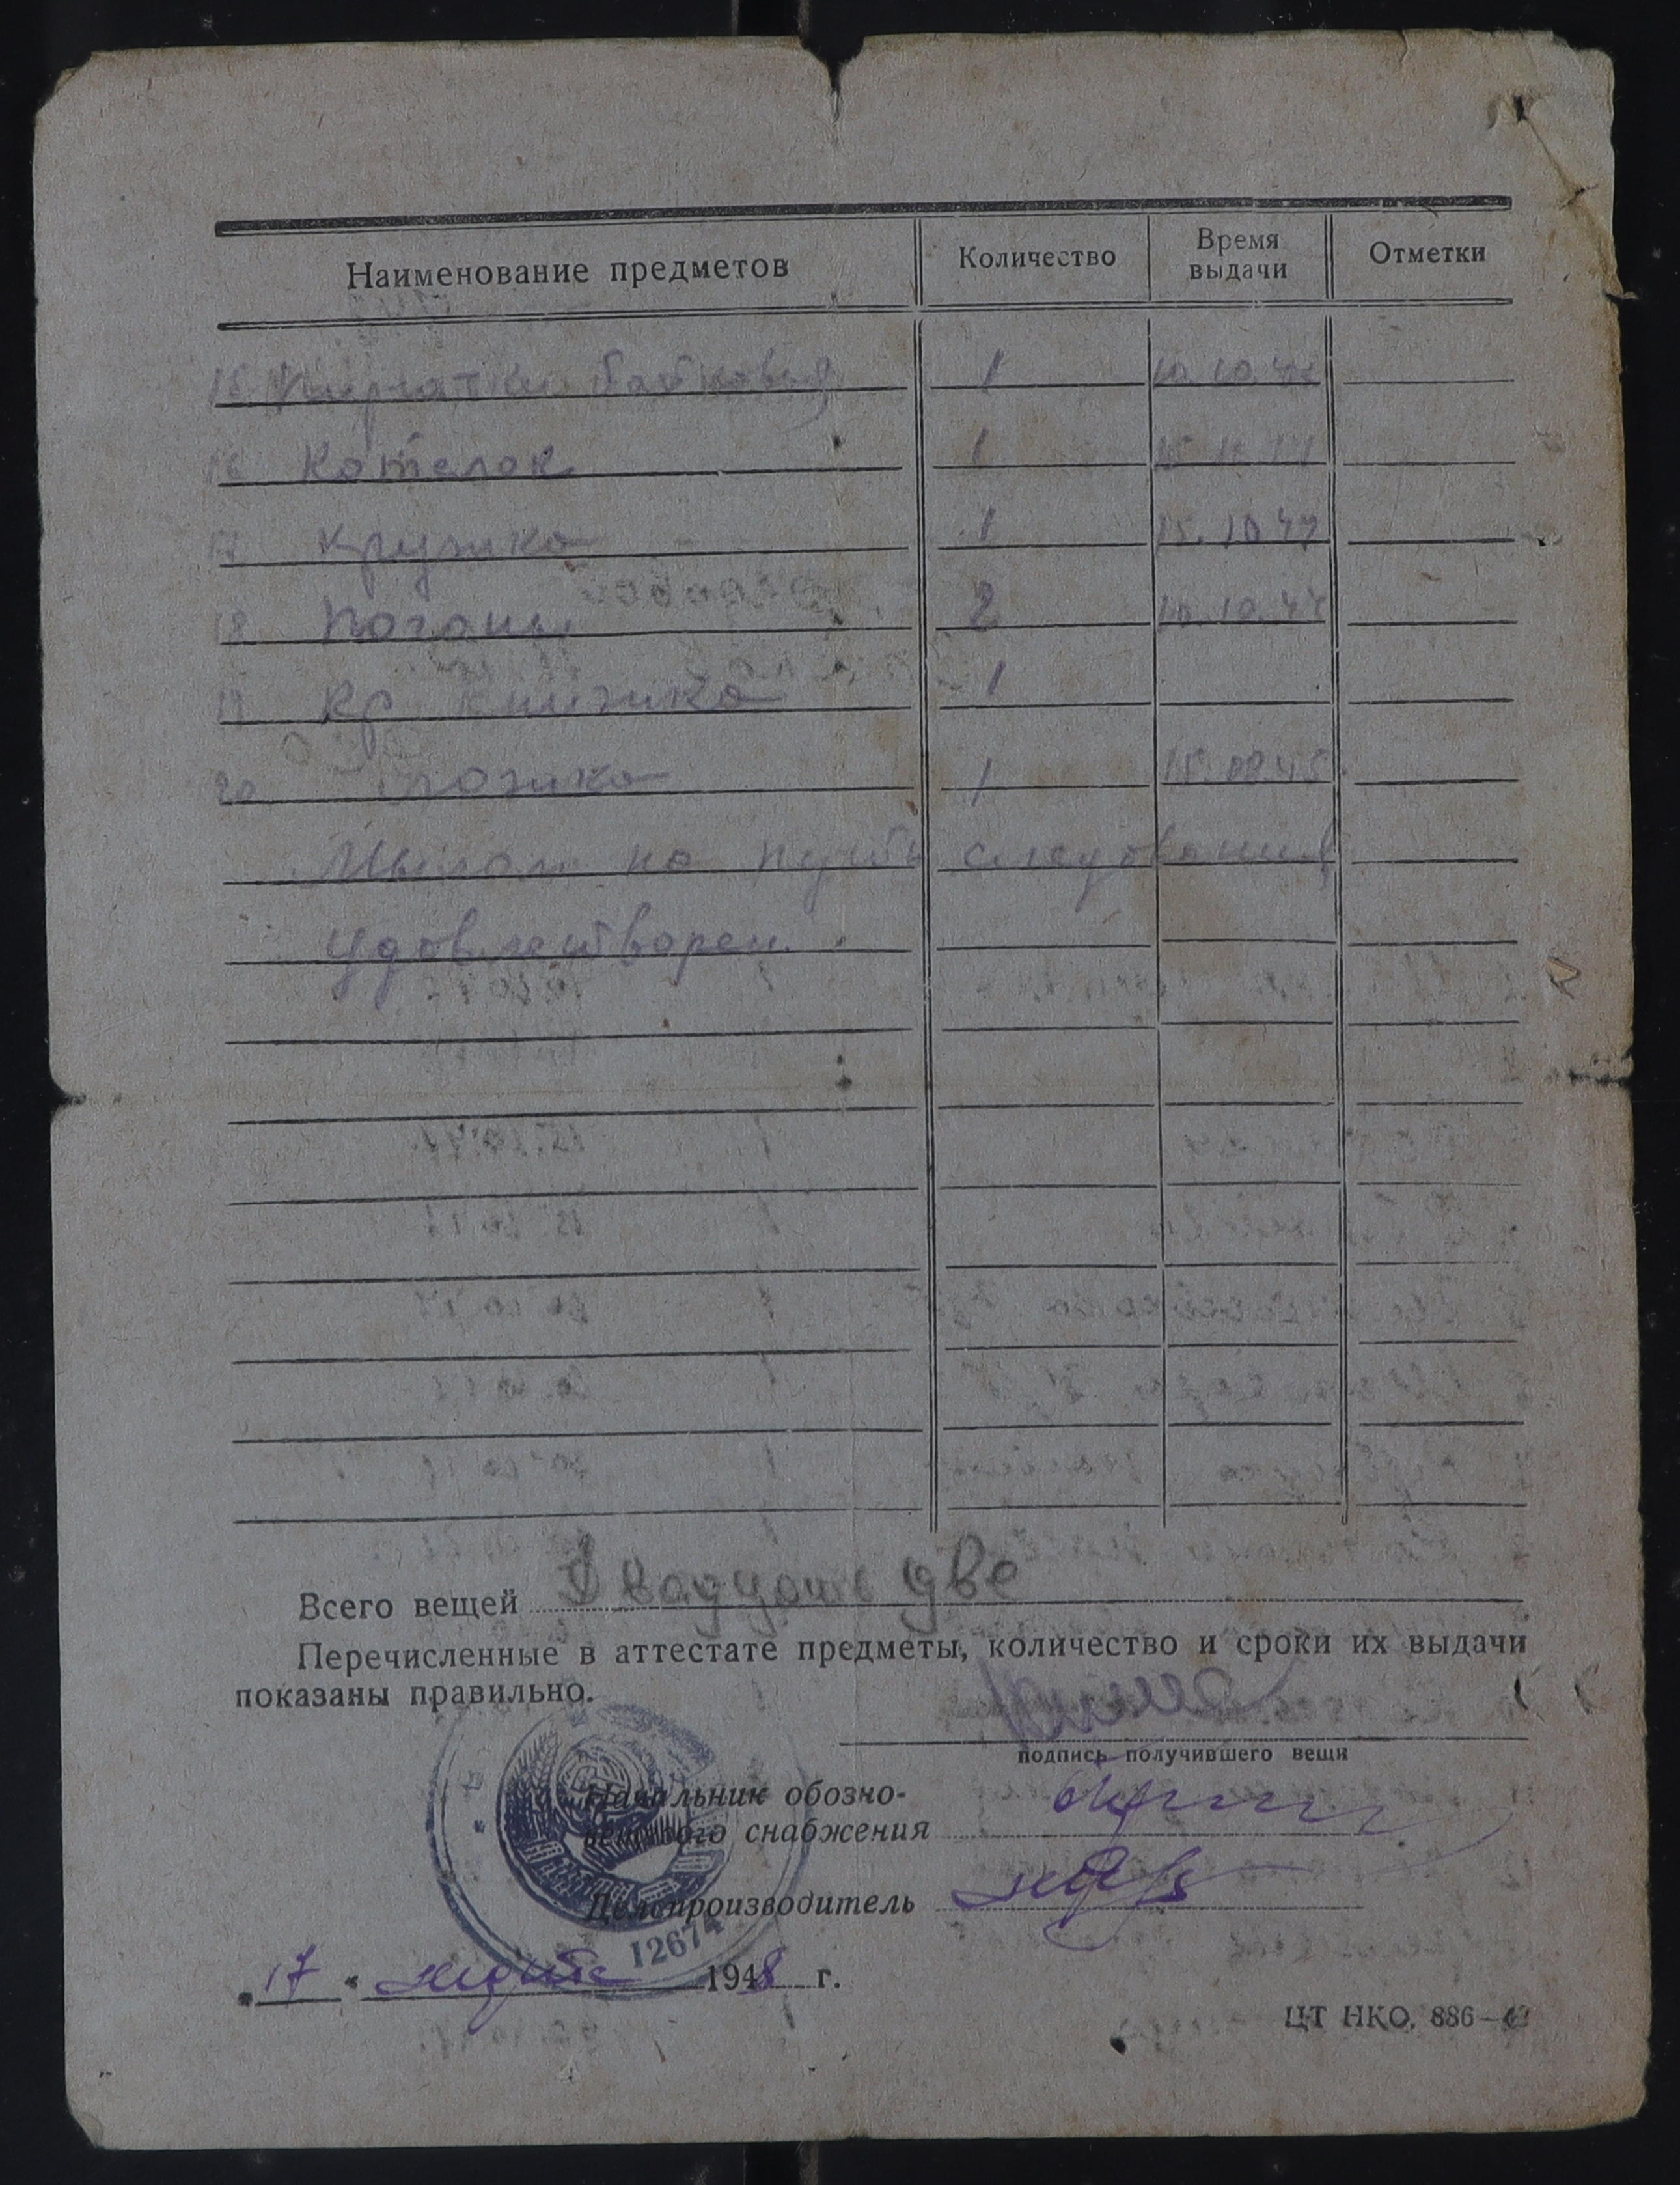 Наименование предметов Количество Время выдачи Отметки
15. Перчатки байковые 1 10.10.47
16 Котелок 1 15.10.47
17 Кружка 1 15.10.47
18 Погоны 2 10.10.47
19 Кр книжка 1
20 Ложка 1
Мылом на путь следования
удовлетворен.
Всего вещей Двадцать две
Перечисленные в аттестате предметы, количество и сроки их выдачи
показаны правильно.
подпись получившего вещи
Начальник обозно-
вещевого снабжения
Делопроизводитель
12674
"17" марта 1948 г.
ЦТ НКО, 886—